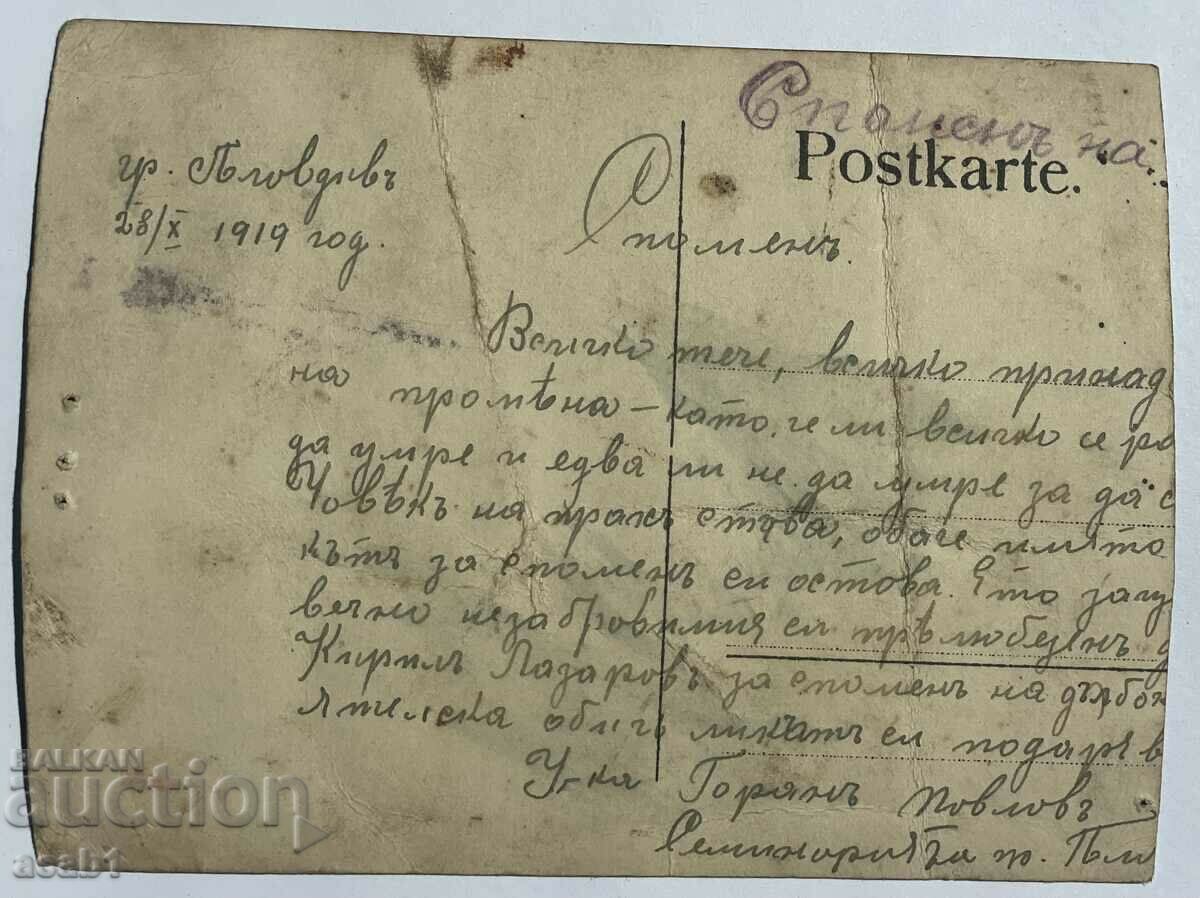 Споменъ на..
Postkarte.
гр. Пловдивъ
28/X 1919 год.
Споменъ.
Всичко тече, всичко принад
на промѣна – като че ли всичко се ро
да умре и едва ли не да умре за да с
Човѣкъ на прахъ става, обаче името
кътъ за споменъ си остова. Ето защ
вечно незабровимия си прѣлюбезенъ
Кирилъ Лазаровъ за споменъ на дълбок
ятелска обичь ликътъ си подарѣв
У-ка Горанъ Повловъ
Семинарията гр. Пло
BALKAN
auction
asab1